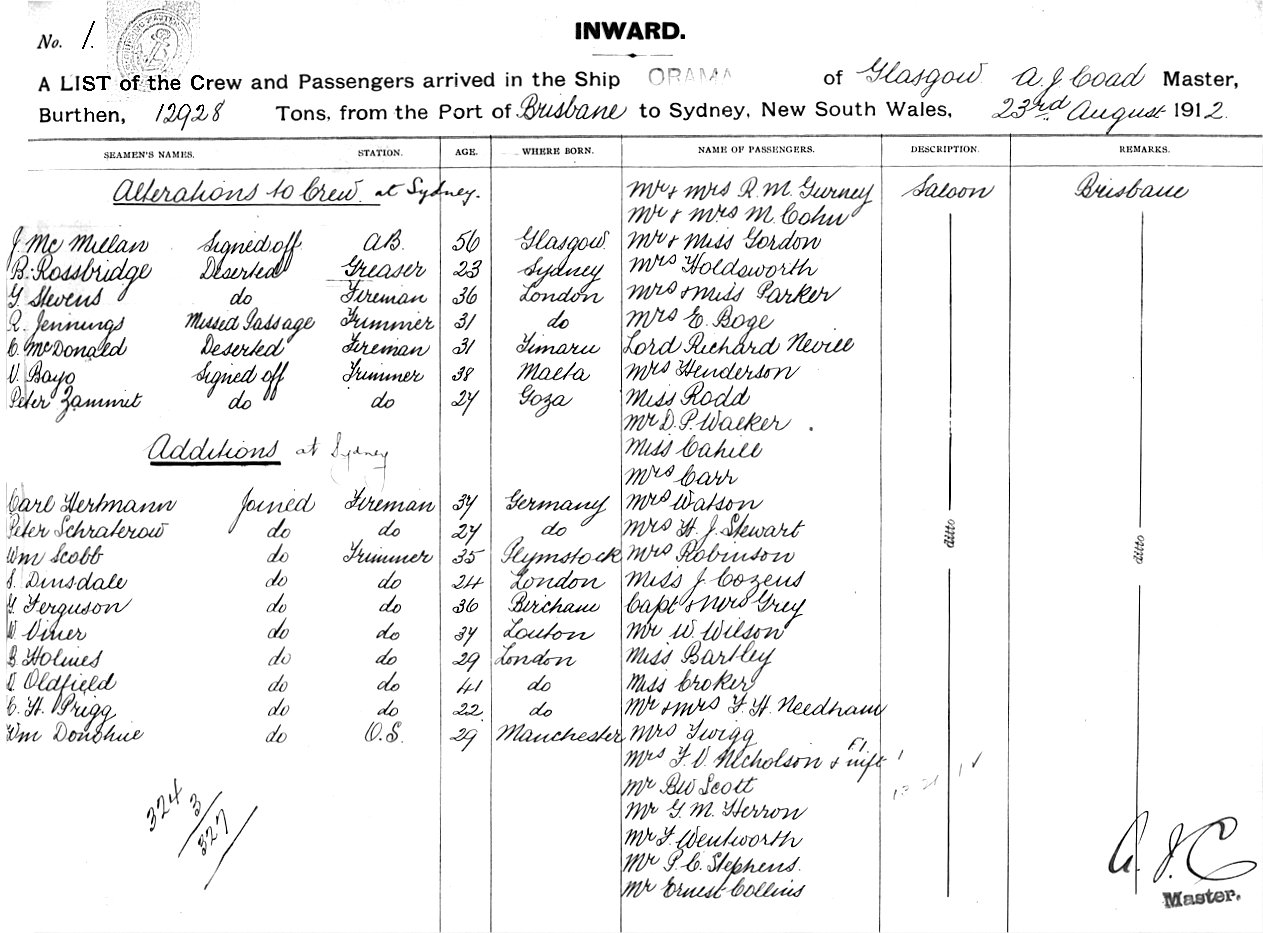 INWARD.
No. 1.
A LIST of the Crew and Passengers arrived in the Ship ORAMA of Glasgow A. J. Coad Master,
Burthen, 12928 Tons, from the Port of Brisbane to Sydney, New South Wales, 23rd August 1912.
SEAMEN'S NAMES. STATION. AGE. WHERE BORN. NAME OF PASSENGERS. DESCRIPTION. REMARKS.
Alterations to Crew at Sydney. Mr & Mrs R. M. Gurney Saloon Brisbane
Mr & Mrs M. Cohn
J. McMillan Signed off A.B. 56 Glasgow. Mr & Miss Gordon
B. Rossbridge Deserted Greaser 23 Sydney Mrs Holdsworth
G. Stevens do Fireman 36 London Mrs & Miss Parker
R. Jennings Missed Passage Trimmer 31 do Mrs E. Boge
C. McDonald Deserted Fireman 31 Timaru Lord Richard Nevill
V. Bayo Signed off Trimmer 38 Malta Mrs Henderson
Peter Zammit do do 27 Goza Miss Rodd
Mr D. P. Walker
Additions at Sydney Miss Cahill
Mrs Carr
Carl Hertmann Joined Fireman 37 Germany Mrs Watson
Peter Schraterow do do 27 do Mrs H. J. Stewart
ditto ditto
Wm Scobb do Trimmer 35 Plymstock Mrs Robinson
S. Dinsdale do do 24 London Miss J. Cozens
G. Ferguson do do 36 Bircham Capt & Mrs Grey
W. Viner do do 37 Louton Mr W. Wilson
B. Holmes do do 29 London Miss Bartley
Oldfield do do 41 do Miss Croker
C. H. Prigg do do 22 do Mr & Mrs F. H. Needham
Wm Donohue do O.S. 29 Manchester Mrs Twigg
Mrs F. V. Nicholson & inft
Mr BW Scott
324 3 Mr G. M. Herron
327 Mr F. Wentworth
Mr P. C. Stephens.
Mr Ernest Collins
A. J. C
Master.